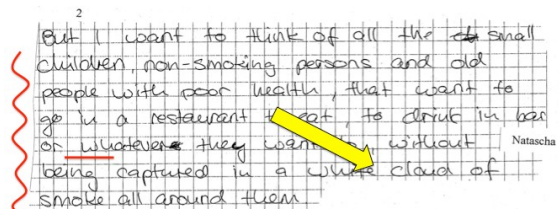 2
But I want to think of all the small
children, non-smoking persons and old
people with poor health, that want to
go in a restaurant eat, to drink in bar
or whatever they want without
Natascha
being captured in a white cloud of
smoke all around them